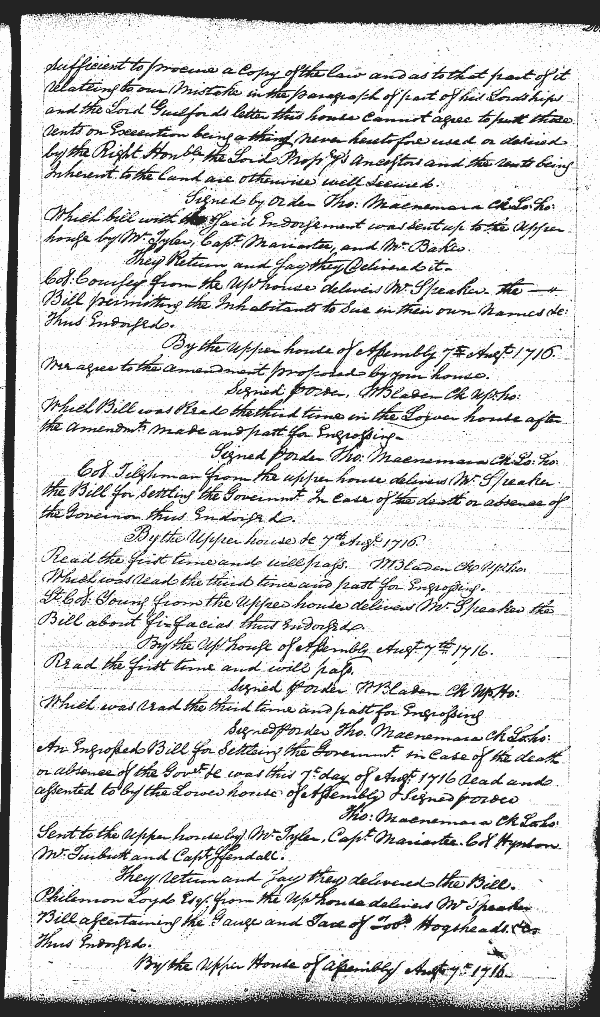 sufficient to procure a Copy of the law and as to that part of it
relating to our Mistake in the paragraph of part of his Lordships
and the Lord Guilfords letter this house Cannot agree to putt those
rents on Execution being a thing never heretofore used or desired
by the Right Honble. the Lord Propry's Ancestors and the rents being
Inherent to the land are otherwise well Secured.
Signed by Order Tho: Macnemara Ck Lo. ho:
Which bill with the said Endorsement was sent up to the Upper
house by Mr. Tyler, Capt. Mariartee, and Mr. Baker
They Return and say they Delivered it.
Col: Coursey from the Up: house delivers Mr. Speaker the
Bill permitting the Inhabitants to Sue in their own Names &c:
Thus Endorsed.
By the Upper house of Assembly 7th Augt. 1716.
Wee agree to the amendment proposed by your house.
Signed p order. WBladen Ck Up: ho:
Which Bill was Read the third time in the Lower house after
the Amendmts. made and past for Engrossing.
Signed p order Tho: Macnemara Ck Lo. ho.
Col. Tilghman from the upper house delivers Mr. Speaker
the Bill for Settling the Governmt. In Case of the death or absence of
the Governor thus Endorsed.
By the Upper house &c 7th Augt. 1716
Read the first time and will pass. WBladen Ck Up. ho.
Which was read the third time and past for Engrossing.
Lt. Col. Young from the Upper house delivers Mr. Speaker the
Bill about fi: facias thus Endorsed
By the Up: house of Assembly Augt. 7th 1716.
Read the first time and will pass
Signed p Order WBladen Ck Up. Ho:
Which was read the third time and past for Engrossing
Signed p order Tho. Macnemara Ck Lo. ho:
An Engrossed Bill for Settling the Governmt. in Case of the death
or absence of the Govr. &c was this 7th day of Augt. 1716 read and
assented to by the Lower house of Assembly & Signed p order
Tho: Macnemara Ck Lo. ho
Sent to the Upper house by Mr. Tyler, Capt. Mariartee. Col Hynson
Mr. Turbutt and Capt. Kendall.
They return and say they delivered the Bill.
Philemon Loyd Esqr. from the Up: house delivers Mr Speaker
Bill ascertaining the Gauge and Tare of Tobo. Hogsheads. &c
Thus Endorsed.
By the Upper House of Assembly Augt. 7th 1716.